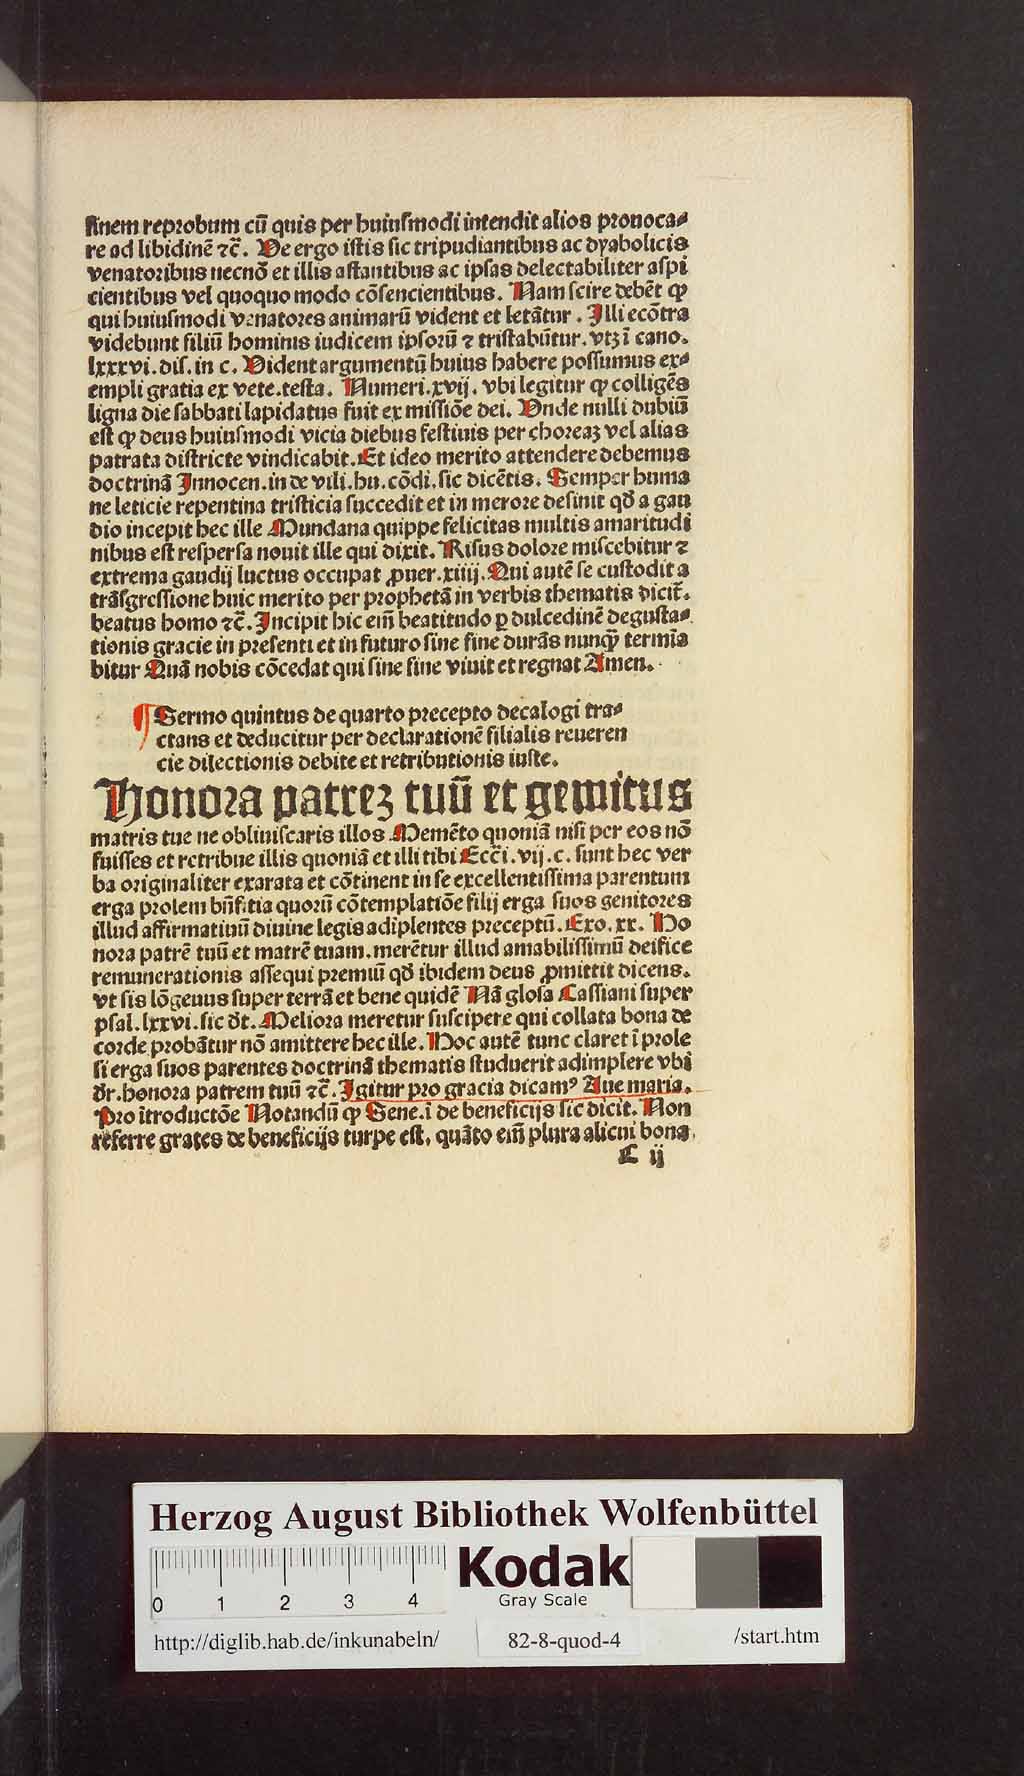 finem reprobum cū quis per huiusmodi intendit alios prouoca⸗
re ad libidinē ⁊c̄. Ve ergo istis sic tripudiantibus ac dyabolicis
venatoribus necnō et illis astantibus ac ipsas delectabiliter aspi
cientibus vel quoquo modo cōsencientibus. Nam scire debēt ꝙ
qui huiusmodi venatores animarū vident et letātur. Illi ecōtra
videbunt filiū hominis iudicem ipsorū ⁊ tristabūtur. vtꝫ ī cano.
lxxxvi. dis. in c. Vident argumentū huius habere possumus ex⸗
empli gratia ex vete. testa. Numeri. xvij. vbi legitur ꝙ colligēs
ligna die sabbati lapidatus fuit ex missiōe dei. Vnde nulli dubiū
est ꝙ deus huiusmodi vicia diebus festiuis per choreaꝫ vel alias
patrata districte vindicabit. Et ideo merito attendere debemus
doctrinā Innocen. in de vili. hu. cōdi. sic dicētis. Semper huma
ne leticie repentina tristicia succedit et in merore desinit qđ a gau
dio incepit hec ille Mundana quippe felicitas multis amaritudi
nibus est respersa nouit ille qui dixit. Risus dolore miscebitur ⁊
extrema gaudij luctus occupat ꝓuer. xiiij. Qui autē se custodit a
trāsgressione huic merito per prophetā in verbis thematis dicit̄.
beatus homo ⁊c̄. Incipit hic eim̄ beatitudo ꝑ dulcedinē degusta⸗
tionis gracie in presenti et in futuro sine fine durās nunqͣꝫ termīa
bitur Quā nobis cōcedat qui sine fine viuit et regnat Amen.
¶ Sermo quintus de quarto precepto decalogi tra⸗
ctans et deducitur per declarationē filialis reueren
cie dilectionis debite et retributionis iuste.
Honora patreꝫ tuū et gemitus
matris tue ne obliuiscaris illos Memēto quoniā nisi per eos nō
fuisses et retribue illis quoniā et illi tibi Ecc̄i. vij. c. sunt hec ver
ba originaliter exarata et cōtinent in se excellentissima parentum
erga prolem bn̄fitia quorū cōtemplatiōe filij erga suos genitores
illud affirmatiuū diuine legis adiplentes preceptū. Exo. xx. Ho
nora patrē tuū et matrē tuam. merētur illud amabilissimū deifice
remunerationis assequi premiū qđ ibidem deus ꝓmittit dicens.
vt sis lōgeuus super terrā et bene quidē Nā glosa Cassiani super
psal. lxxvi. sic dt̄. Meliora meretur suscipere qui collata bona de
corde probātur nō amittere hec ille. Hoc autē tunc claret ī prole
si erga suos parentes doctrinā thematis studuerit adimplere vbi
dr̄. honora patrem tuū ⁊c̄. Igitur pro gracia dicamꝰ Aue maria.
Pro ītroductōe Notandū ꝙ Sene. ī de beneficijs sic dicit. Non
referre grates de beneficijs turpe est, quāto eim̄ plura alicui bona
C ij
Herzog August Bibliothek Wolfenbüttel
0 1 2 3 4
Kodak
Gray Scale
http://diglib.hab.de/inkunabeln/ 82-8-quod-4 /start.htm